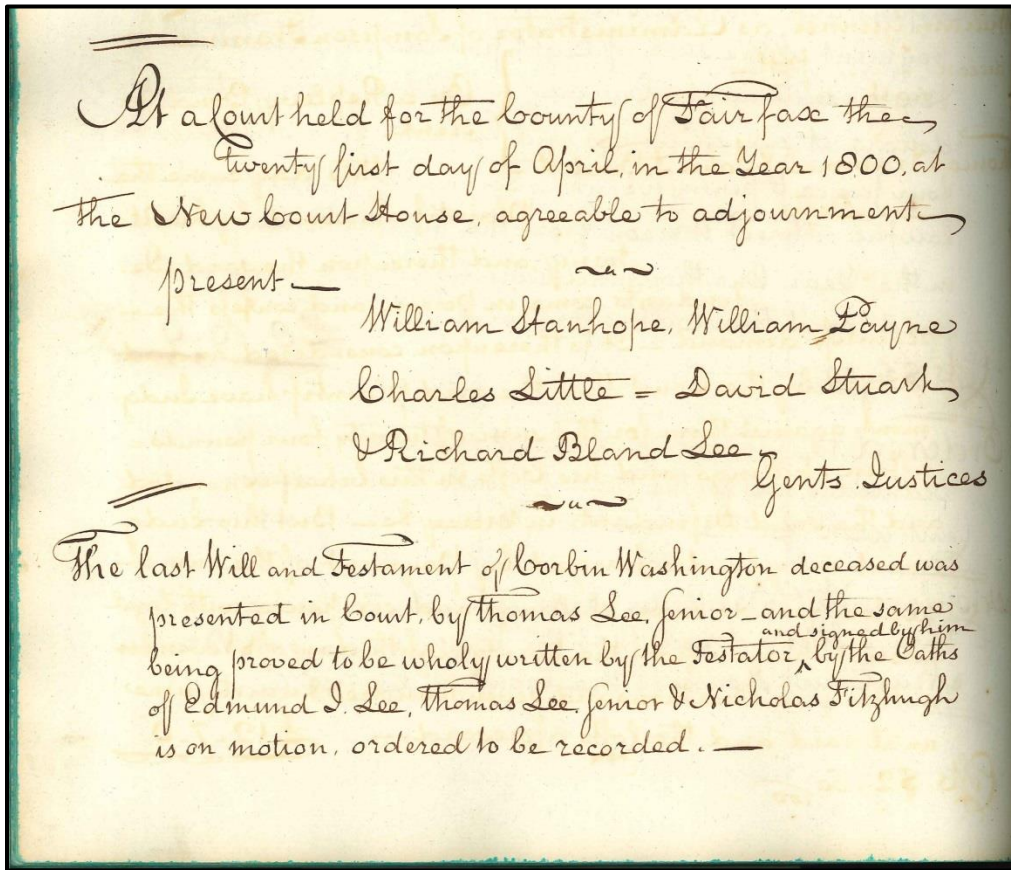 At a Court held for the County of Fairfax the
twenty first day of April, in the Year 1800, at
the New Court House, agreeable to adjournment
present —
William Stanhope, William Payne
Charles Little = David Stuart
& Richard Bland Lee
Gents. Justices
The last Will and Testament of Corbin Washington deceased was
presented in Court, by Thomas Lee, Senior — and the same
and signed by him
being proved to be wholy written by the Testator ^ by the Oaths
of Edmund J. Lee, Thomas Lee, Senior & Nicholas Fitzhugh
is on motion, ordered to be recorded. —